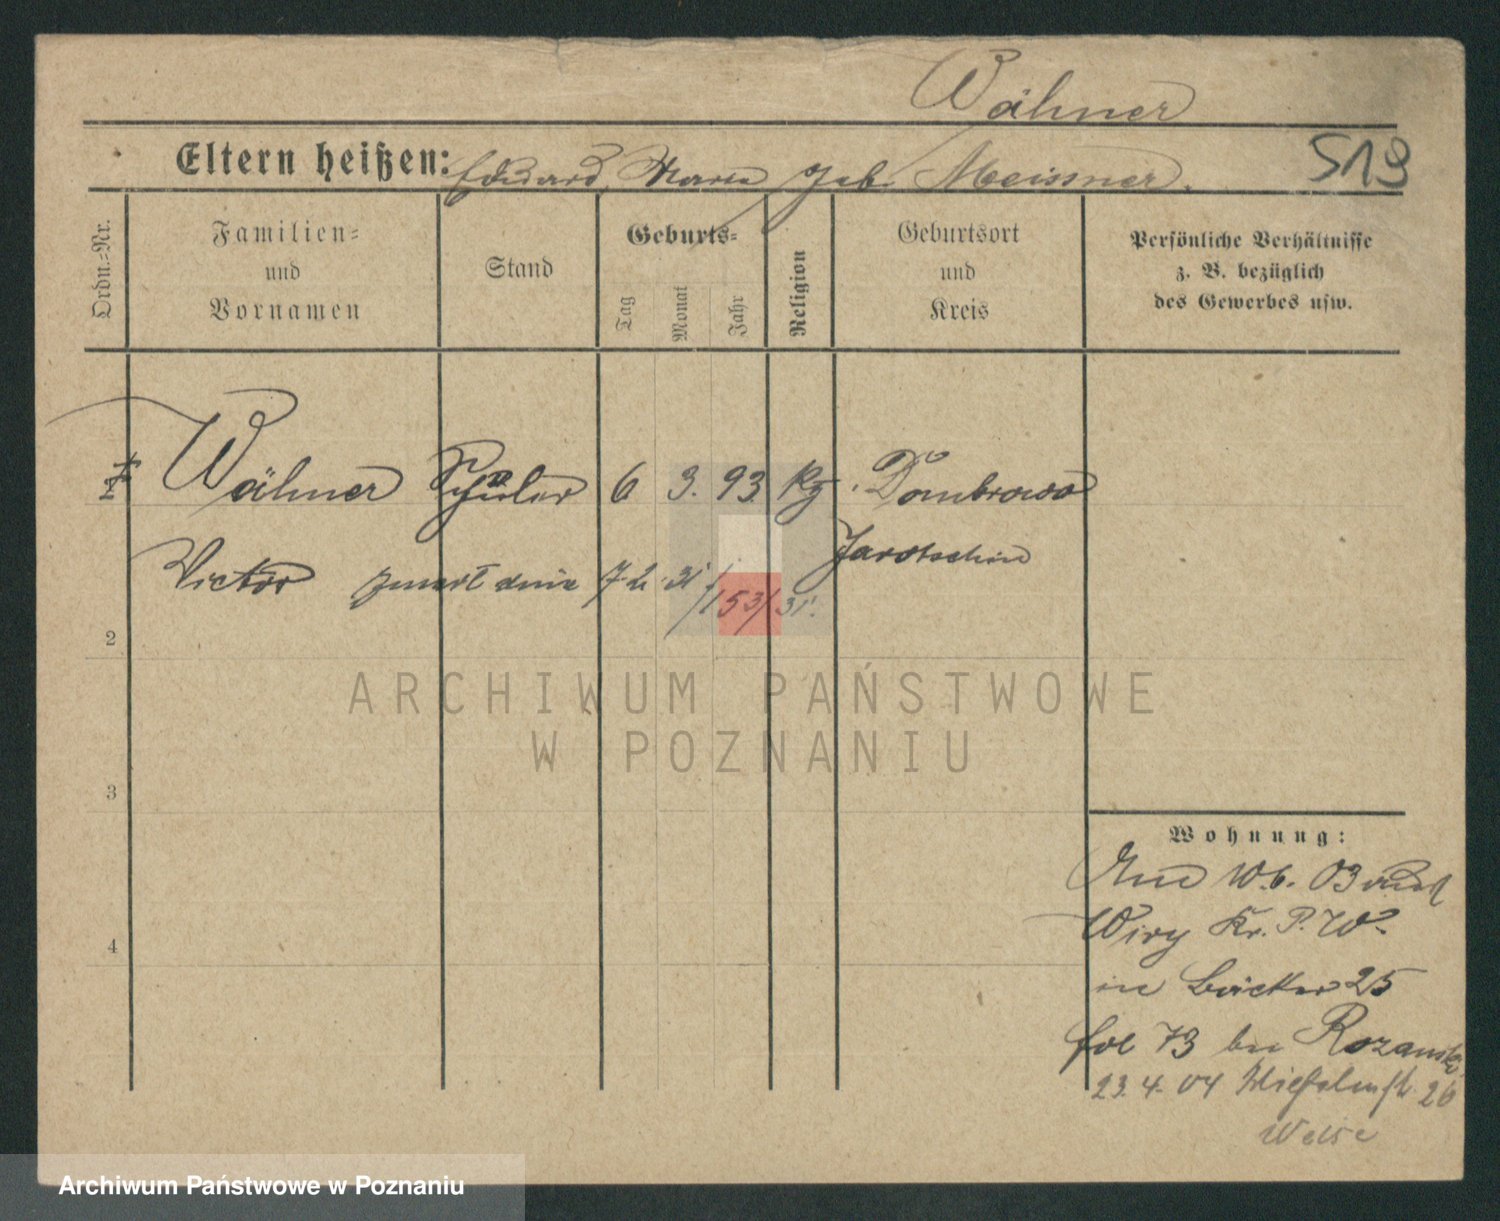 Wähner
Eltern heißen: Eduard, Maria geb. Meissner.
519
Ordn.-Nr.
Familien- und Vornamen
Stand
Geburts-
Tag
Monat
Jahr
Religion
Geburtsort und Kreis
Persönliche Verhältnisse
z. B. bezüglich
des Gewerbes usw.
1
Wähner Schüler 6 3. 93 kg. Dombrowo
Jarotschin
Victor zmarł dnia 7.2. 31 /153/31.
2
3
4
Wohnung:
10.6. 03 nach
Wiry Kr. P. W.
in Bäcker 25
fol 73 bei Rozanski
23.4.04 26
Weise
ARCHIWUM PAŃSTWOWE
W POZNANIU
Archiwum Państwowe w Poznaniu